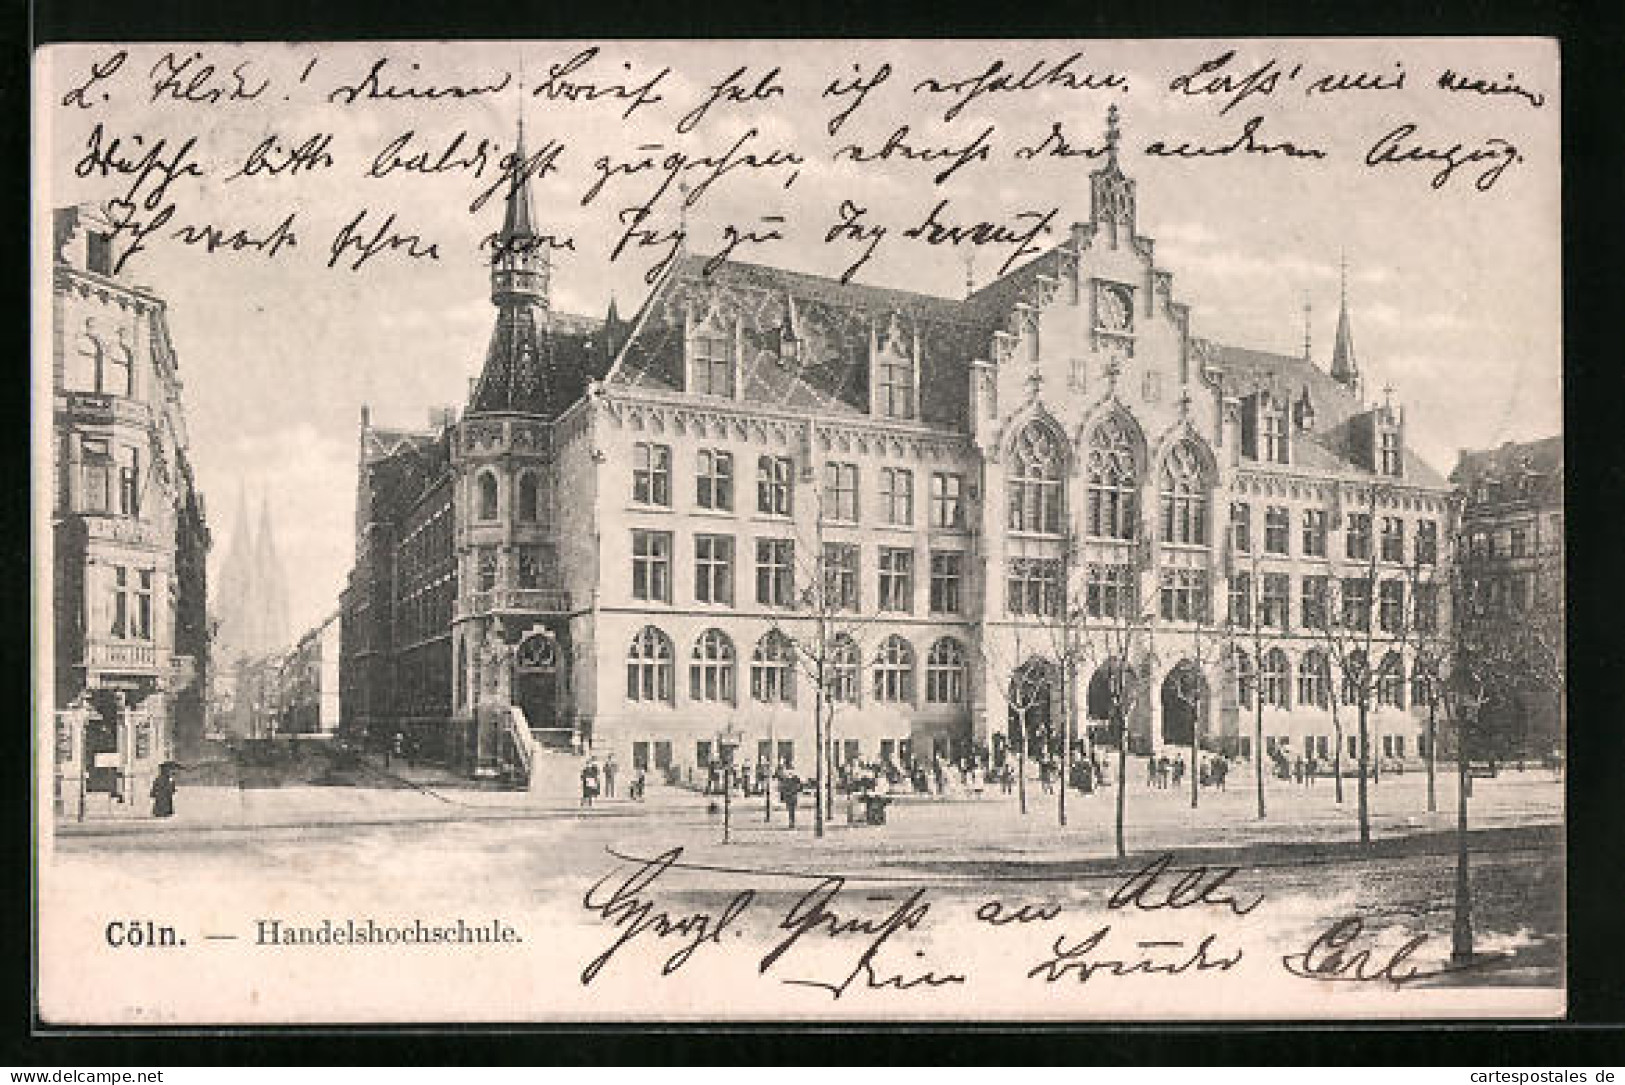 L. Tilde! Deinen Brief hab ich erhalten. Laß' mir meine
Wäsche bitte baldigst zugehen, ebenso den anderen Anzug.
Ich warte schon von Tag zu Tag darauf.
Herzl. Gruß an Alle
Dein Bruder Carl
Cöln. — Handelshochschule.
cartespostales de